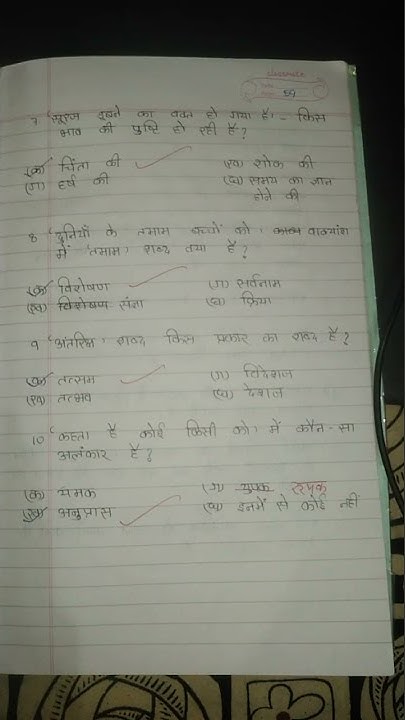 classmate
59
7 'सूरज डूबने का वक्त हो गया है' - किस
भाव की पुष्टि हो रही है?
(क) चिंता की (ख) शोक की
(ग) हर्ष की (घ) समय का ज्ञान
होने की
8 'दुनियाँ के तमाम बच्चों को' वाक्यांश
में 'तमाम' शब्द क्या है?
(क) विशेषण (ग) सर्वनाम
(ख) विशेषण संज्ञा (घ) क्रिया
9 'अंतरिक्ष' शब्द किस प्रकार का शब्द है?
(क) तत्सम (ग) विदेशज
(ख) तत्भव (घ) देशज
10 'कहता है कोई किसी को' में कौन-सा
अलंकार है?
(क) यमक (ग) रूपक
(ख) अनुप्रास (घ) इनमें से कोई नहीं